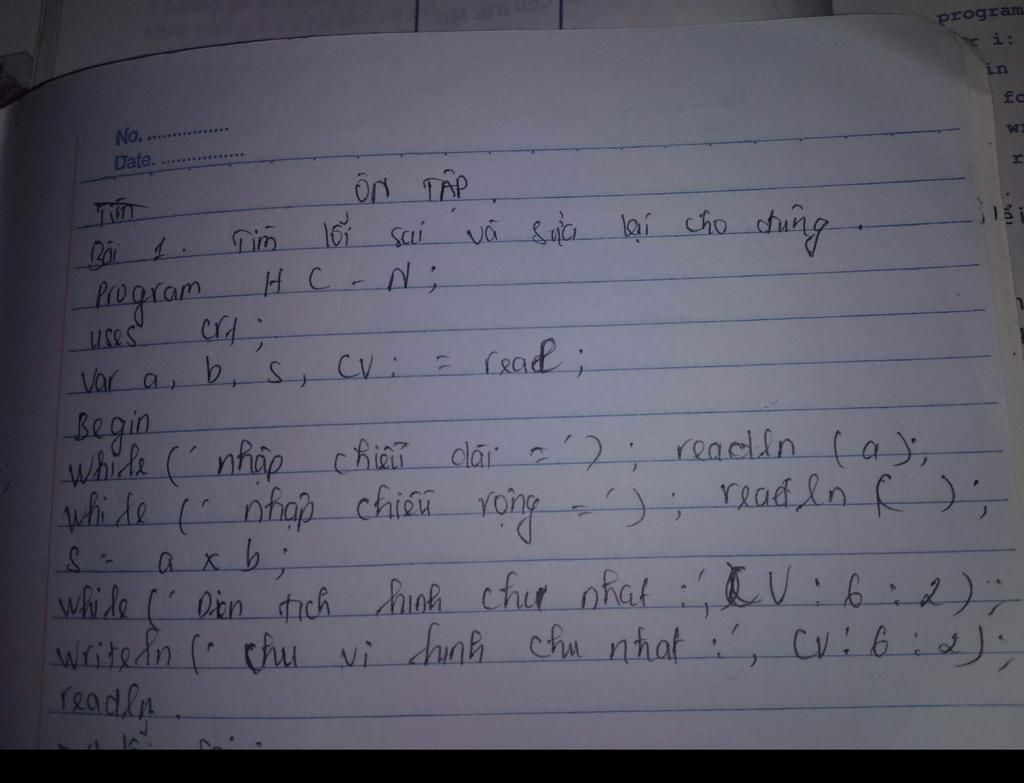 program
i:
in
fo
w
r
No.
Date.
ÔN TẬP.
Tin
Bài 1. Tìm lỗi sai và sửa lại cho đúng.
Program H C - N;
uses crt;
Var a, b, s, CV : = real;
Begin
While (' nhập chiều dài = '); readln (a);
While (' nhập chiều rọng = '); readln ( );
S = a x b;
While (' Dien tich hinh chu nhat : ', CV : 6 : 2);
Writeln (' Chu vi hinh chu nhat : ', CV : 6 : 2);
readln.